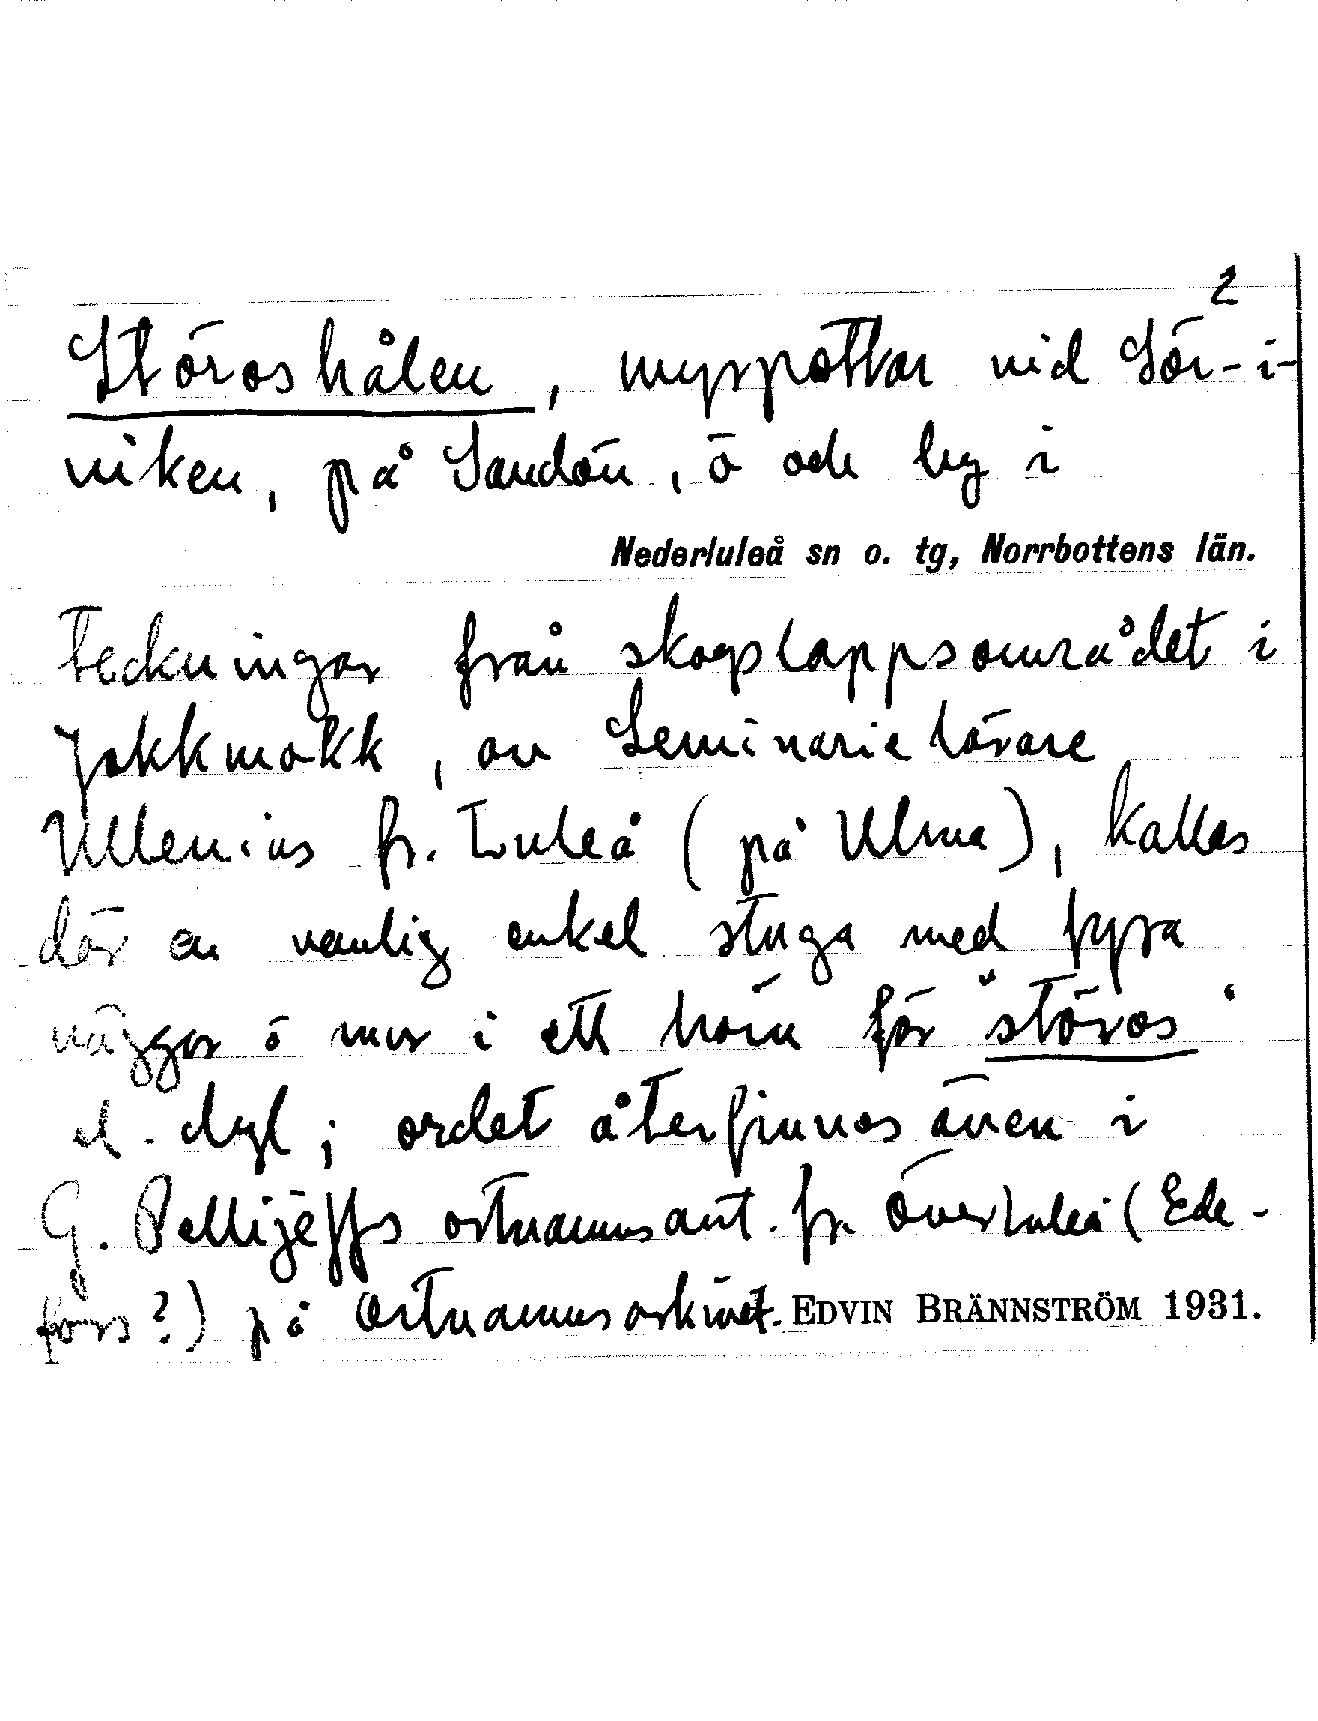 2
Störoshålen, myrpottar vid Sör-i-
viken, på Sandön, ö och by i
Nederluleå sn o. tg, Norrbottens län.
teckningar från skogslappsområdet i
Jokkmokk, av Seminarielärare
Ullenius fr. Luleå (på Ulma), kallas
där en vanlig enkel stuga med fyra
väggar ö mur i ett hörn för "störos"
el. dyl; ordet återfinnes även i
G. Pellijeffs ortnamnsant. fr. Överluleå (Ede-
fors?) på Ortnamnsarkivet. EDVIN BRÄNNSTRÖM 1931.